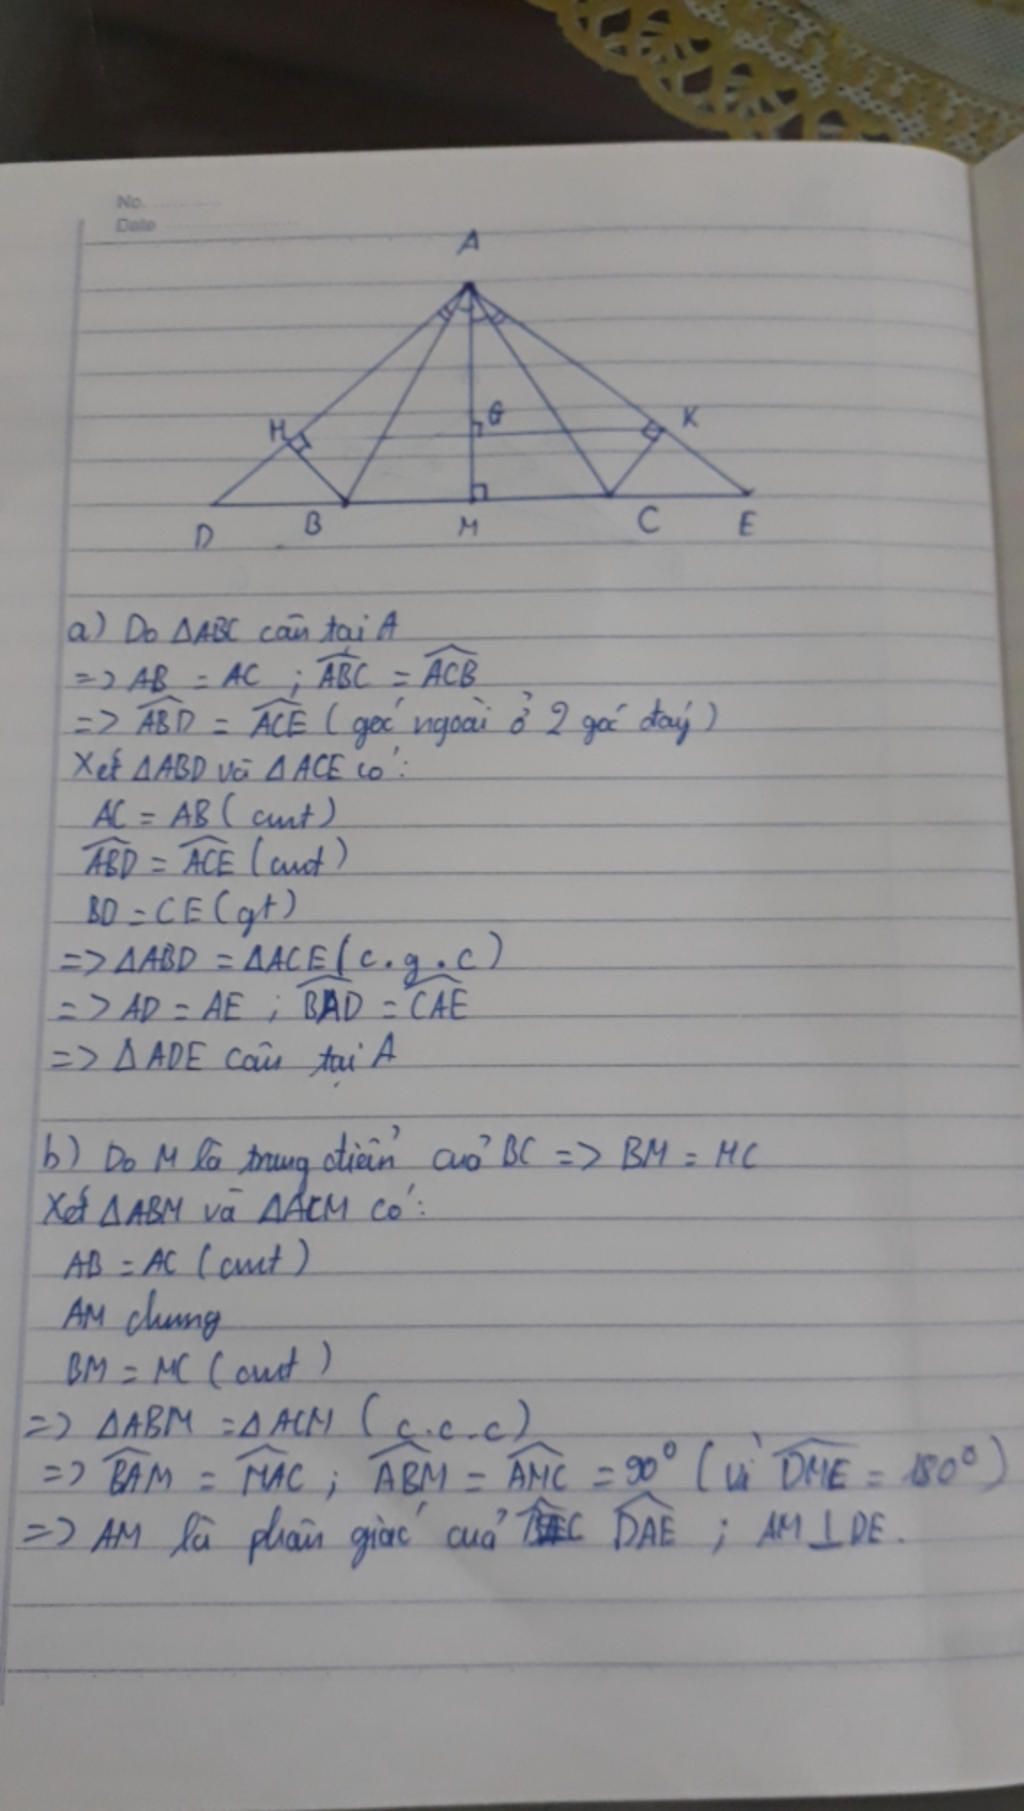 No.
Date
A
H
G
K
D
B
M
C
E
a) Do ΔABC cân tại A
=> AB = AC ; \widehat{ABC} = \widehat{ACB}
=> \widehat{ABD} = \widehat{ACE} (góc ngoài ở 2 góc đáy)
Xét ΔABD và ΔACE có:
AC = AB (cmt)
\widehat{ABD} = \widehat{ACE} (cmt)
BD = CE (gt)
=> ΔABD = ΔACE (c.g.c)
=> AD = AE ; \widehat{BAD} = \widehat{CAE}
=> ΔADE cân tại A
b) Do M là trung điểm của BC => BM = MC
Xét ΔABM và ΔACM có:
AB = AC (cmt)
AM chung
BM = MC (cmt)
=> ΔABM = ΔACM (c.c.c)
=> \widehat{BAM} = \widehat{MAC} ; \widehat{ABM} = \widehat{AMC} = 90° (vì \widehat{DME} = 180°)
=> AM là phân giác của \widehat{DAE} ; AM ⊥ DE.